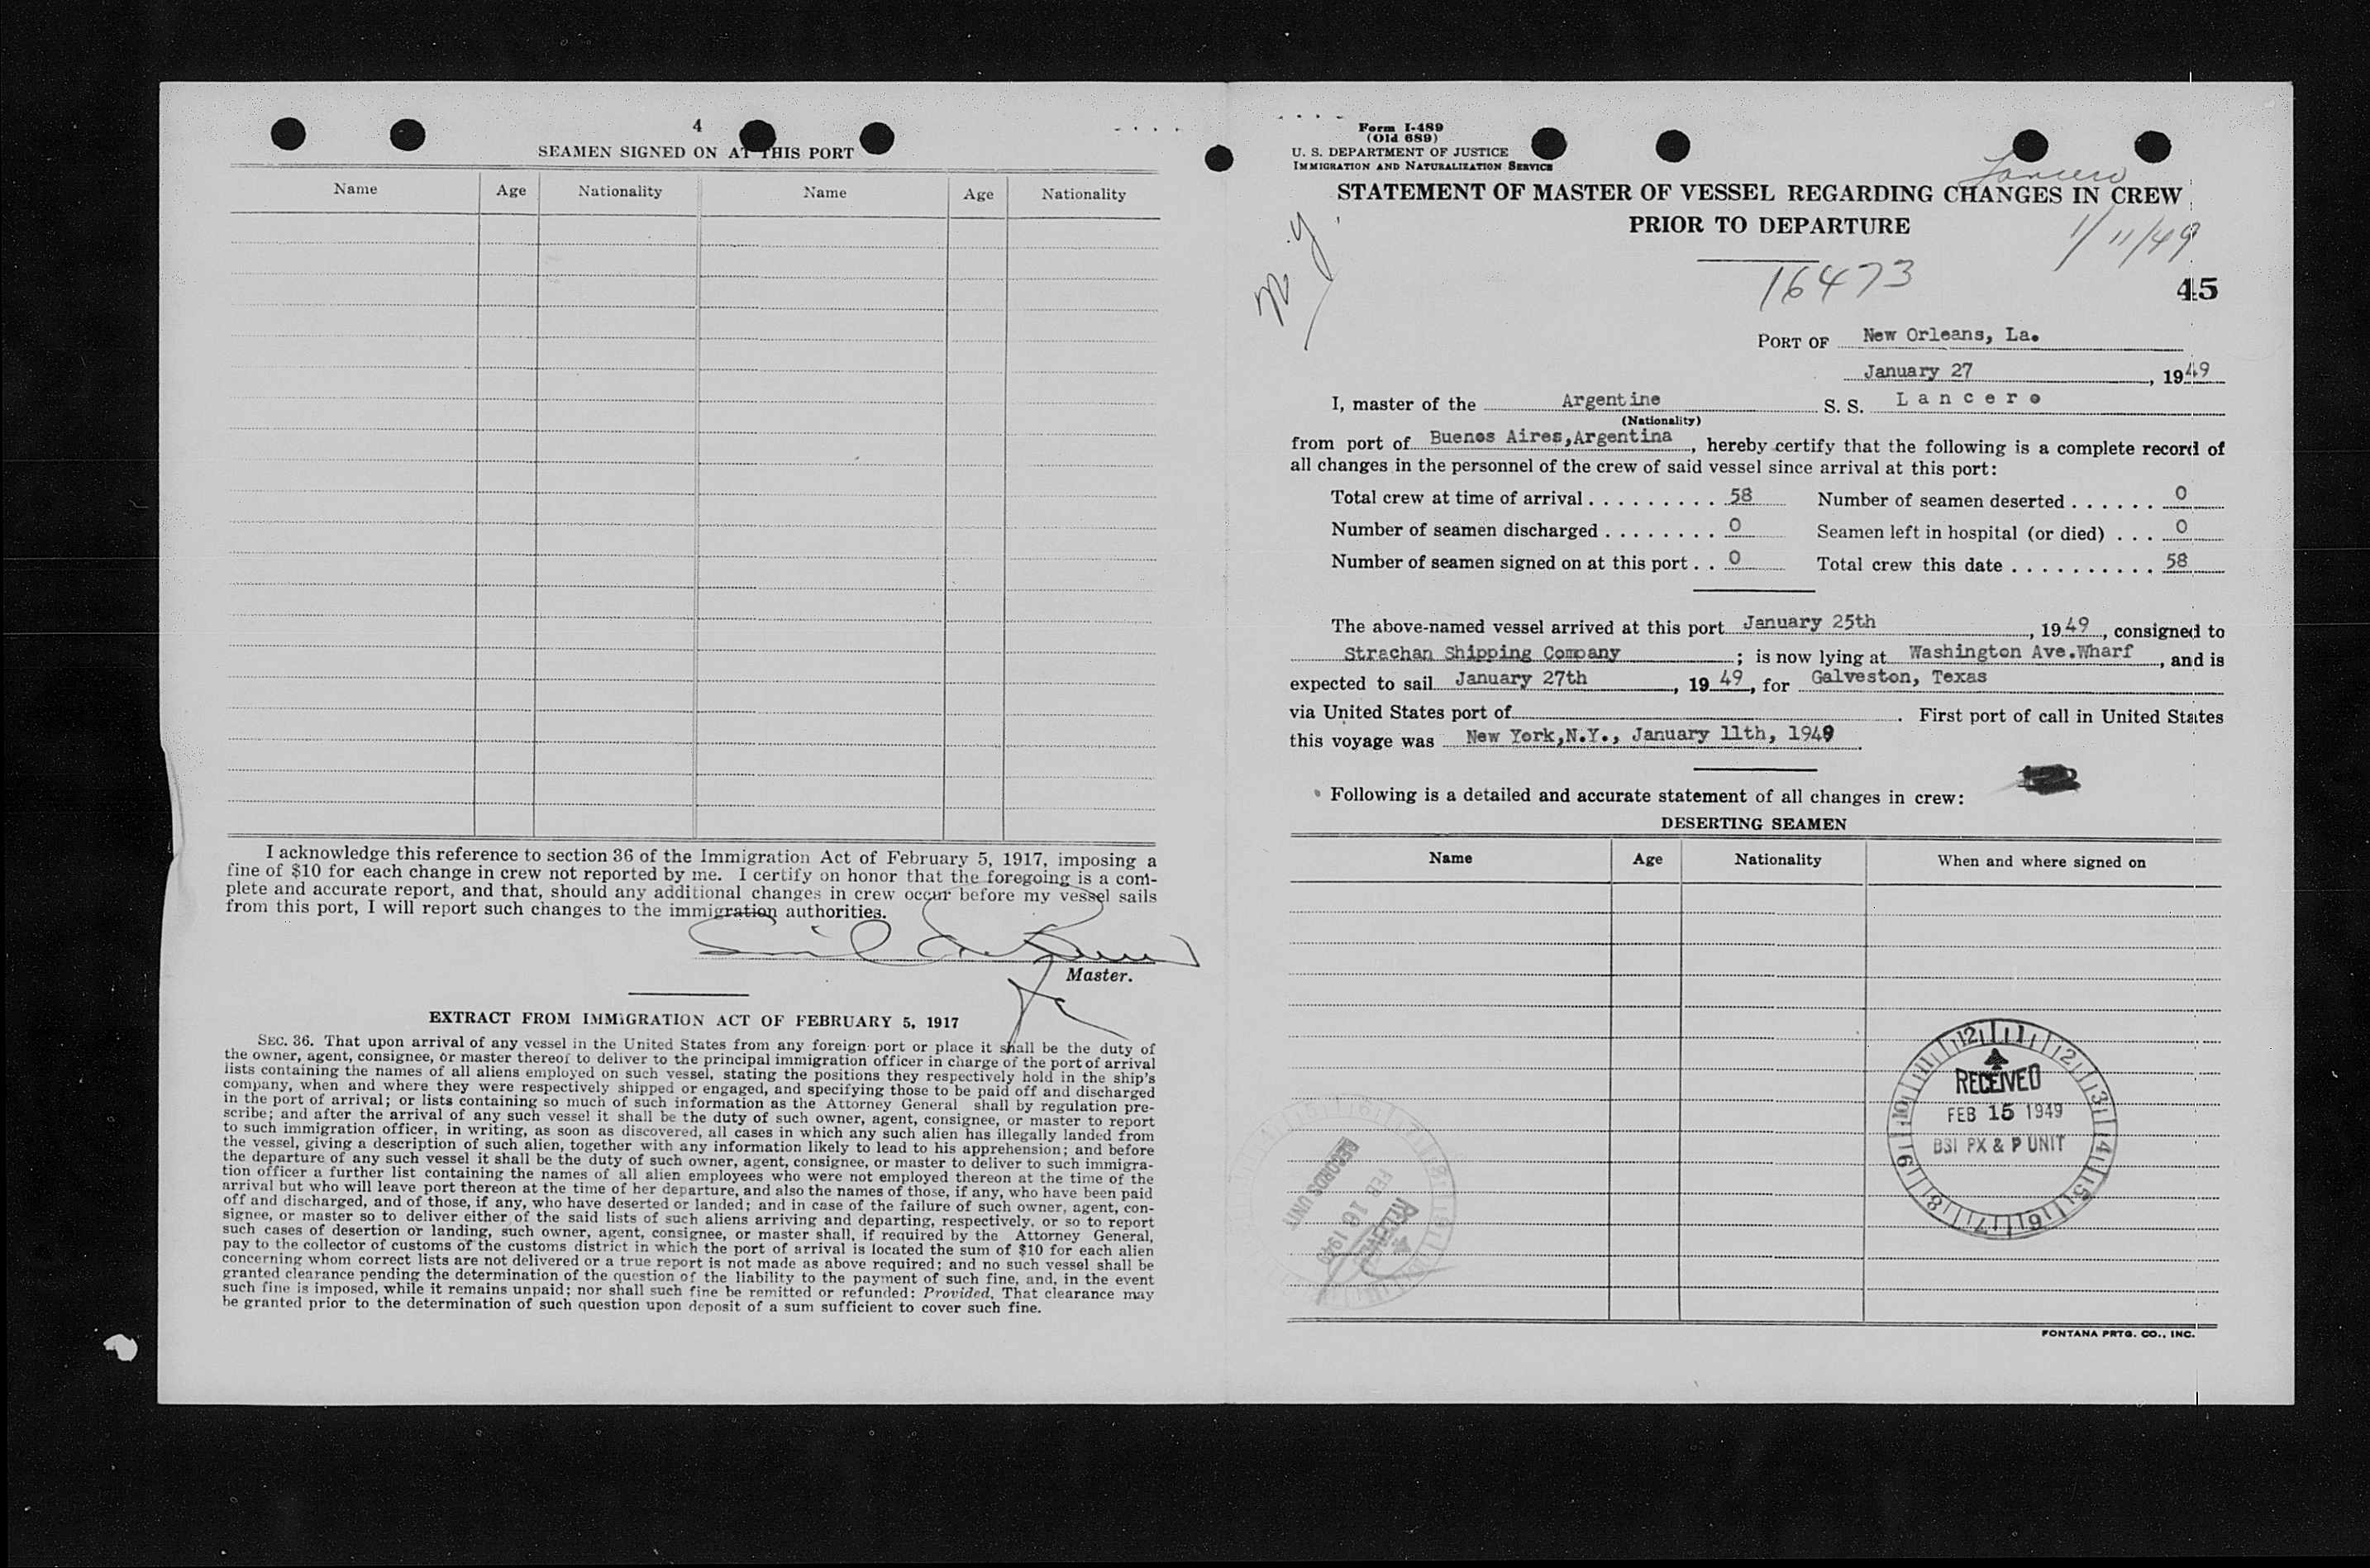 4
SEAMEN SIGNED ON AT THIS PORT
Name Age Nationality Name Age Nationality
I acknowledge this reference to section 36 of the Immigration Act of February 5, 1917, imposing a
fine of $10 for each change in crew not reported by me. I certify on honor that the foregoing is a com-
plete and accurate report, and that, should any additional changes in crew occur before my vessel sails
from this port, I will report such changes to the immigration authorities.
Master.
EXTRACT FROM IMMIGRATION ACT OF FEBRUARY 5, 1917
SEC. 36. That upon arrival of any vessel in the United States from any foreign port or place it shall be the duty of
the owner, agent, consignee, or master thereof to deliver to the principal immigration officer in charge of the port of arrival
lists containing the names of all aliens employed on such vessel, stating the positions they respectively hold in the ship's
company, when and where they were respectively shipped or engaged, and specifying those to be paid off and discharged
in the port of arrival; or lists containing so much of such information as the Attorney General shall by regulation pre-
scribe; and after the arrival of any such vessel it shall be the duty of such owner, agent, consignee, or master to report
to such immigration officer, in writing, as soon as discovered, all cases in which any such alien has illegally landed from
the vessel, giving a description of such alien, together with any information likely to lead to his apprehension; and before
the departure of any such vessel it shall be the duty of such owner, agent, consignee, or master to deliver to such immigra-
tion officer a further list containing the names of all alien employees who were not employed thereon at the time of the
arrival but who will leave port thereon at the time of her departure, and also the names of those, if any, who have been paid
off and discharged, and of those, if any, who have deserted or landed; and in case of the failure of such owner, agent, con-
signee, or master so to deliver either of the said lists of such aliens arriving and departing, respectively, or so to report
such cases of desertion or landing, such owner, agent, consignee, or master shall, if required by the Attorney General,
pay to the collector of customs of the customs district in which the port of arrival is located the sum of $10 for each alien
concerning whom correct lists are not delivered or a true report is not made as above required; and no such vessel shall be
granted clearance pending the determination of the question of the liability to the payment of such fine, and, in the event
such fine is imposed, while it remains unpaid; nor shall such fine be remitted or refunded: Provided, That clearance may
be granted prior to the determination of such question upon deposit of a sum sufficient to cover such fine.
Form I-489
(Old 689)
U. S. DEPARTMENT OF JUSTICE
IMMIGRATION AND NATURALIZATION SERVICE
Lancero
STATEMENT OF MASTER OF VESSEL REGARDING CHANGES IN CREW
PRIOR TO DEPARTURE
1/11/49
N.Y.
16473
45
PORT OF New Orleans, La.
January 27, 1949
I, master of the Argentine S. S. Lancero
(Nationality)
from port of Buenos Aires,Argentina, hereby certify that the following is a complete record of
all changes in the personnel of the crew of said vessel since arrival at this port:
Total crew at time of arrival . . . . . . . . . . 58 Number of seamen deserted . . . . . . 0
Number of seamen discharged . . . . . . . . 0 Seamen left in hospital (or died) . . . 0
Number of seamen signed on at this port . . 0 Total crew this date . . . . . . . . . . 58
The above-named vessel arrived at this port January 25th, 1949, consigned to
Strachan Shipping Company; is now lying at Washington Ave.Wharf, and is
expected to sail January 27th, 1949, for Galveston, Texas
via United States port of . First port of call in United States
this voyage was New York,N.Y., January 11th, 1949
Following is a detailed and accurate statement of all changes in crew:
DESERTING SEAMEN
Name Age Nationality When and where signed on
12 1 2 3 4 5 6 7 8 9 10 11
RECEIVED
FEB 15 1949
BSI PX & P UNIT
RECEIVED
FEB 16 1949
RECORDS UNIT
FONTANA PRTG. CO., INC.